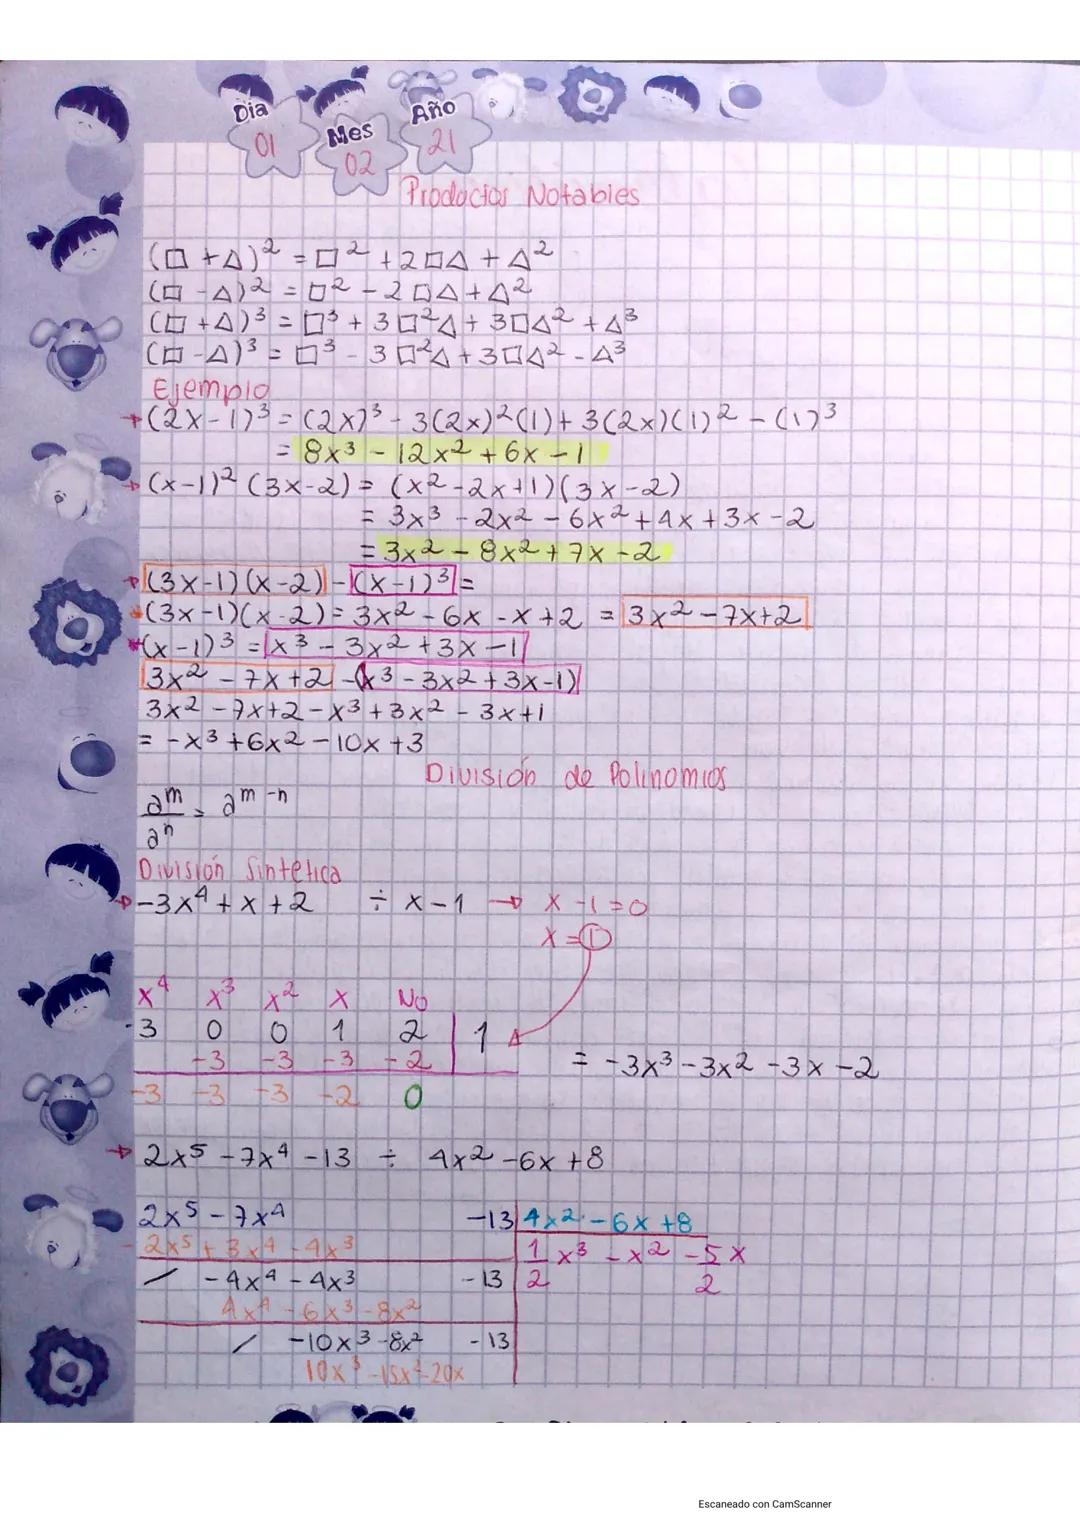 Dia Mes Año
01 02 21
Productos Notables
(□ + △)² = □² + 2□△ + △²
(□ - △)² = □² - 2□△ + △²
(□ + △)³ = □³ + 3□²△ + 3□△² + △³
(□ - △)³ = □³ - 3□²△ + 3□△² - △³
Ejemplo
→ (2x-1)³ = (2x)³ - 3(2x)²(1) + 3(2x)(1)² - (1)³
= 8x³ - 12x² + 6x - 1
→ (x-1)² (3x-2) = (x² - 2x + 1)(3x - 2)
= 3x³ - 2x² - 6x² + 4x + 3x - 2
= 3x² - 8x² + 7x - 2
→ (3x-1)(x-2) - (x-1)³ =
(3x-1)(x-2) = 3x² - 6x - x + 2 = 3x² - 7x + 2
*(x-1)³ = x³ - 3x² + 3x - 1
3x² - 7x + 2 - (x³ - 3x² + 3x - 1)
3x² - 7x + 2 - x³ + 3x² - 3x + 1
= -x³ + 6x² - 10x + 3
División de Polinomios
a^m / a^n = a^m-n
División Sintetica
→ -3x⁴ + x + 2 ÷ x - 1 → x - 1 = 0
x = 1
x⁴ x³ x² x No
-3 0 0 1 2 | 1
-3 -3 -3 -2
= -3x³ - 3x² - 3x - 2
-3 -3 -3 -2 0
→ 2x⁵ - 7x⁴ - 13 ÷ 4x² - 6x + 8
2x⁵ - 7x⁴ -13 | 4x² - 6x + 8
- 2x⁵ + 3x⁴ - 4x³ 1/2 x³ - x² - 5/2 x
/ - 4x⁴ - 4x³ - 13
4x⁴ - 6x³ - 8x²
/ -10x³ - 8x² - 13
10x³ - 15x² - 20x
Escaneado con CamScanner